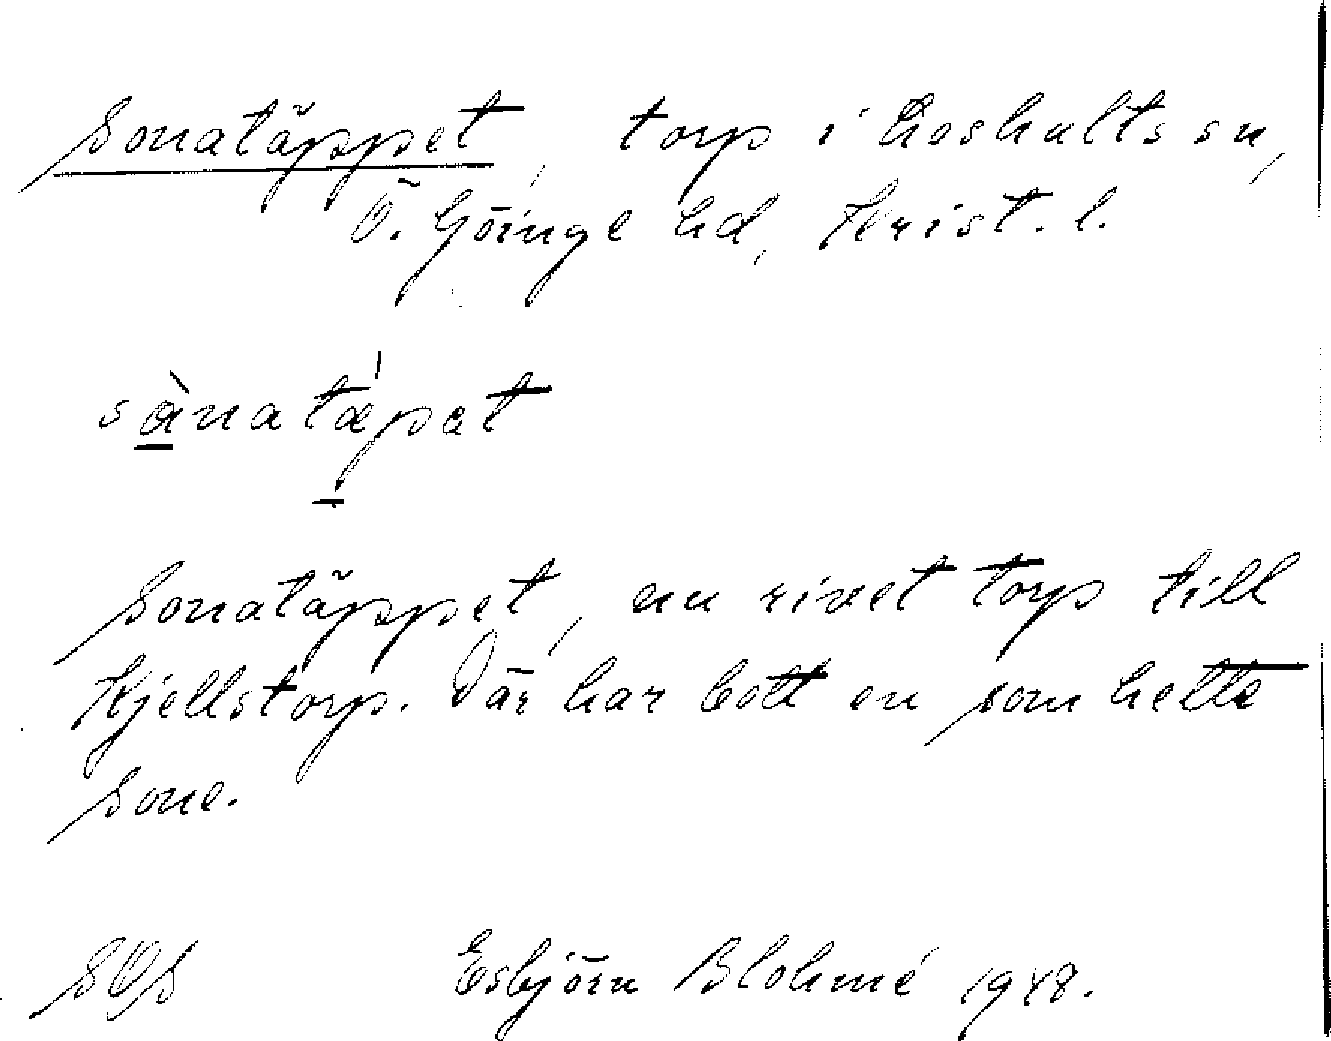 Sonatäppet, torp i Loshults sn,
Ö. Göinge hd, Krist. l.
sånatæpet
Sonatäppet, en rivet torp till
Kjellstorp. Där har bott en som hette
Sone.
SOS Esbjörn Blohmé 1948.